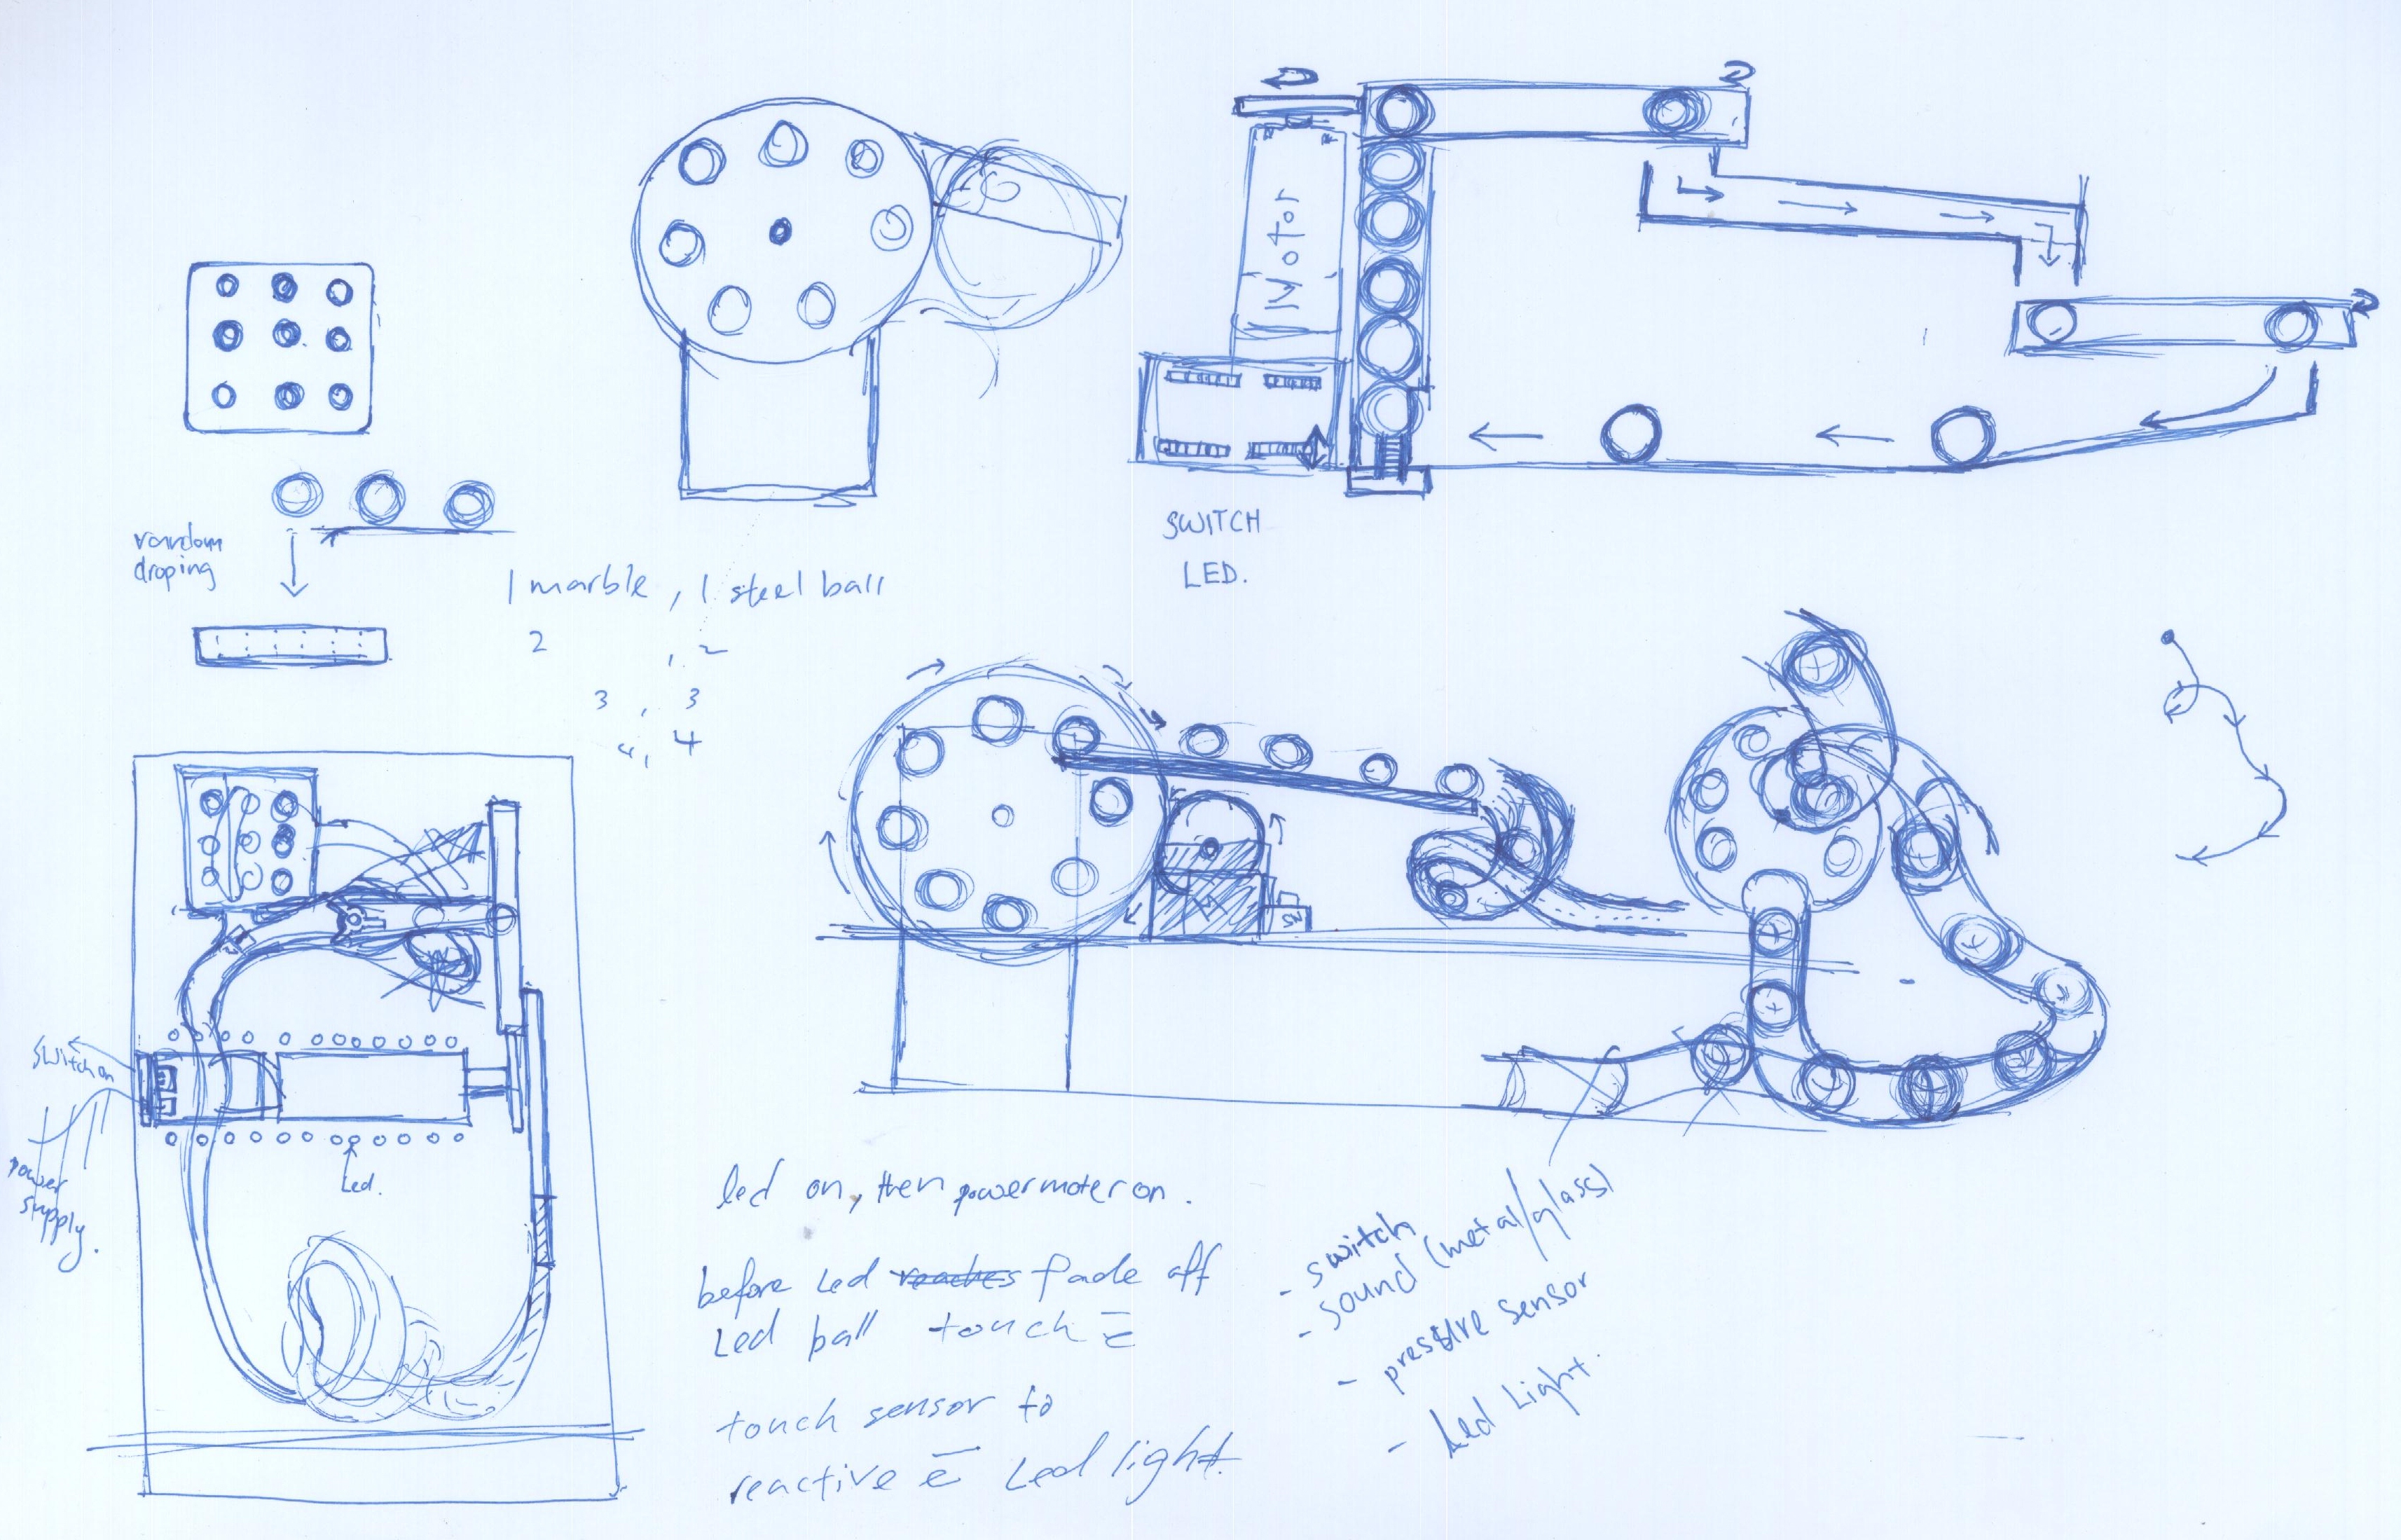 Motor
SWITCH
LED.
random
droping
1 marble, 1 steel ball
2 , 2
3 , 3
4, 4
SW
Switch on
power
supply.
Led.
led on, then power moter on.
before Led reaches fade off
Led ball touch c̄
touch sensor to
reactive c̄ Led light.
- switch
- sound (metal/glass)
- pressure sensor
- Led Light.